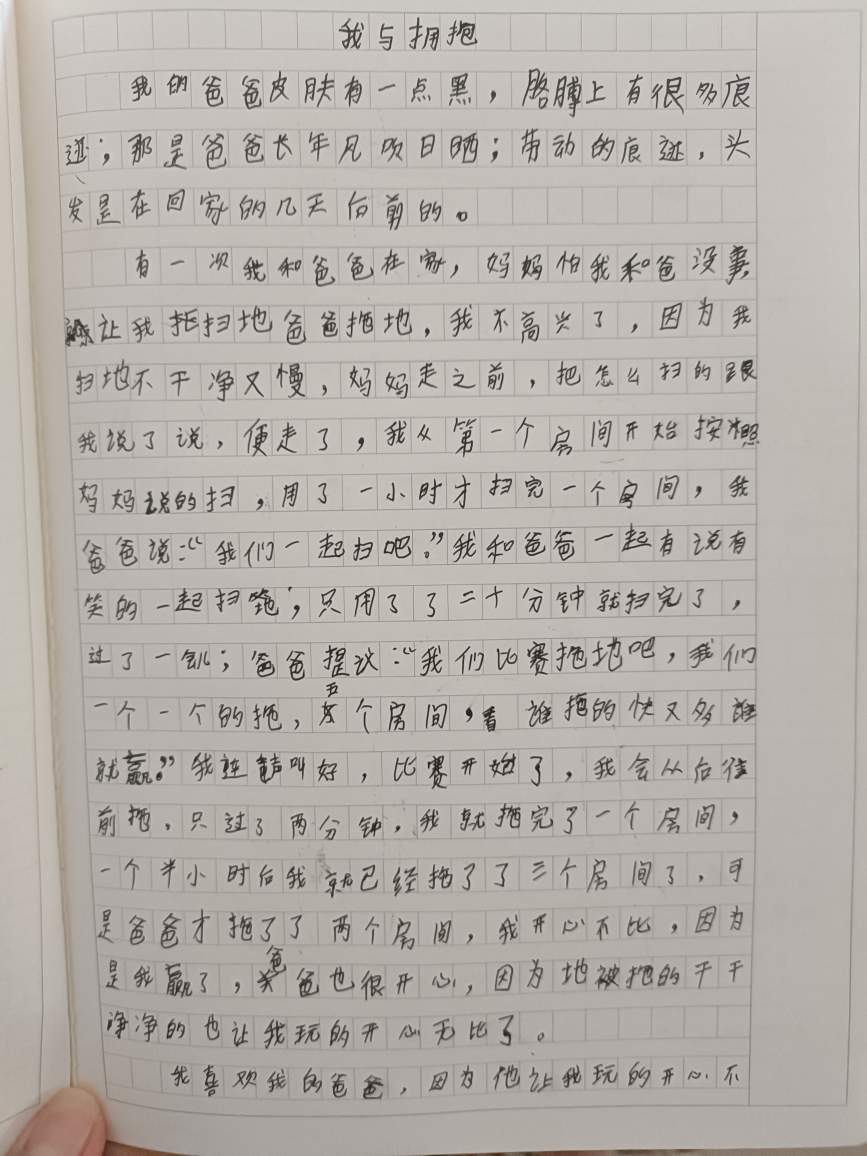 我与拥抱
我的爸爸皮肤有一点黑，胳膊上有很多痕
迹；那是爸爸长年风吹日晒；带动的痕迹，头
发是在回家的几天后剪的。
有一次我和爸爸在家，妈妈怕我和爸没事
让我拒扫地爸爸拖地，我不高兴了，因为我
扫地不干净又慢，妈妈走之前，把怎么扫的跟
我说了说，便走了，我从第一个房间开始按照
妈妈说的扫，用了一小时才扫完一个房间，我
爸爸说：“我们一起扫吧。”我和爸爸一起有说有
笑的一起扫地，只用了了二十分钟就扫完了，
过了一会儿；爸爸提议：“我们比赛拖地吧，我们
一个一个的拖，五个房间，看谁拖的快又多谁
就赢。”我连声叫好，比赛开始了，我会从后往
前拖，只过了两分钟，我就拖完了一个房间，
一个半小时后我就已经拖了了三个房间了，可
是爸爸才拖了了两个房间，我开心不比，因为
是我赢了，爸爸也很开心，因为地被拖的干干
净净的也让我玩的开心无比了。
我喜欢我的爸爸，因为他让我玩的开心不